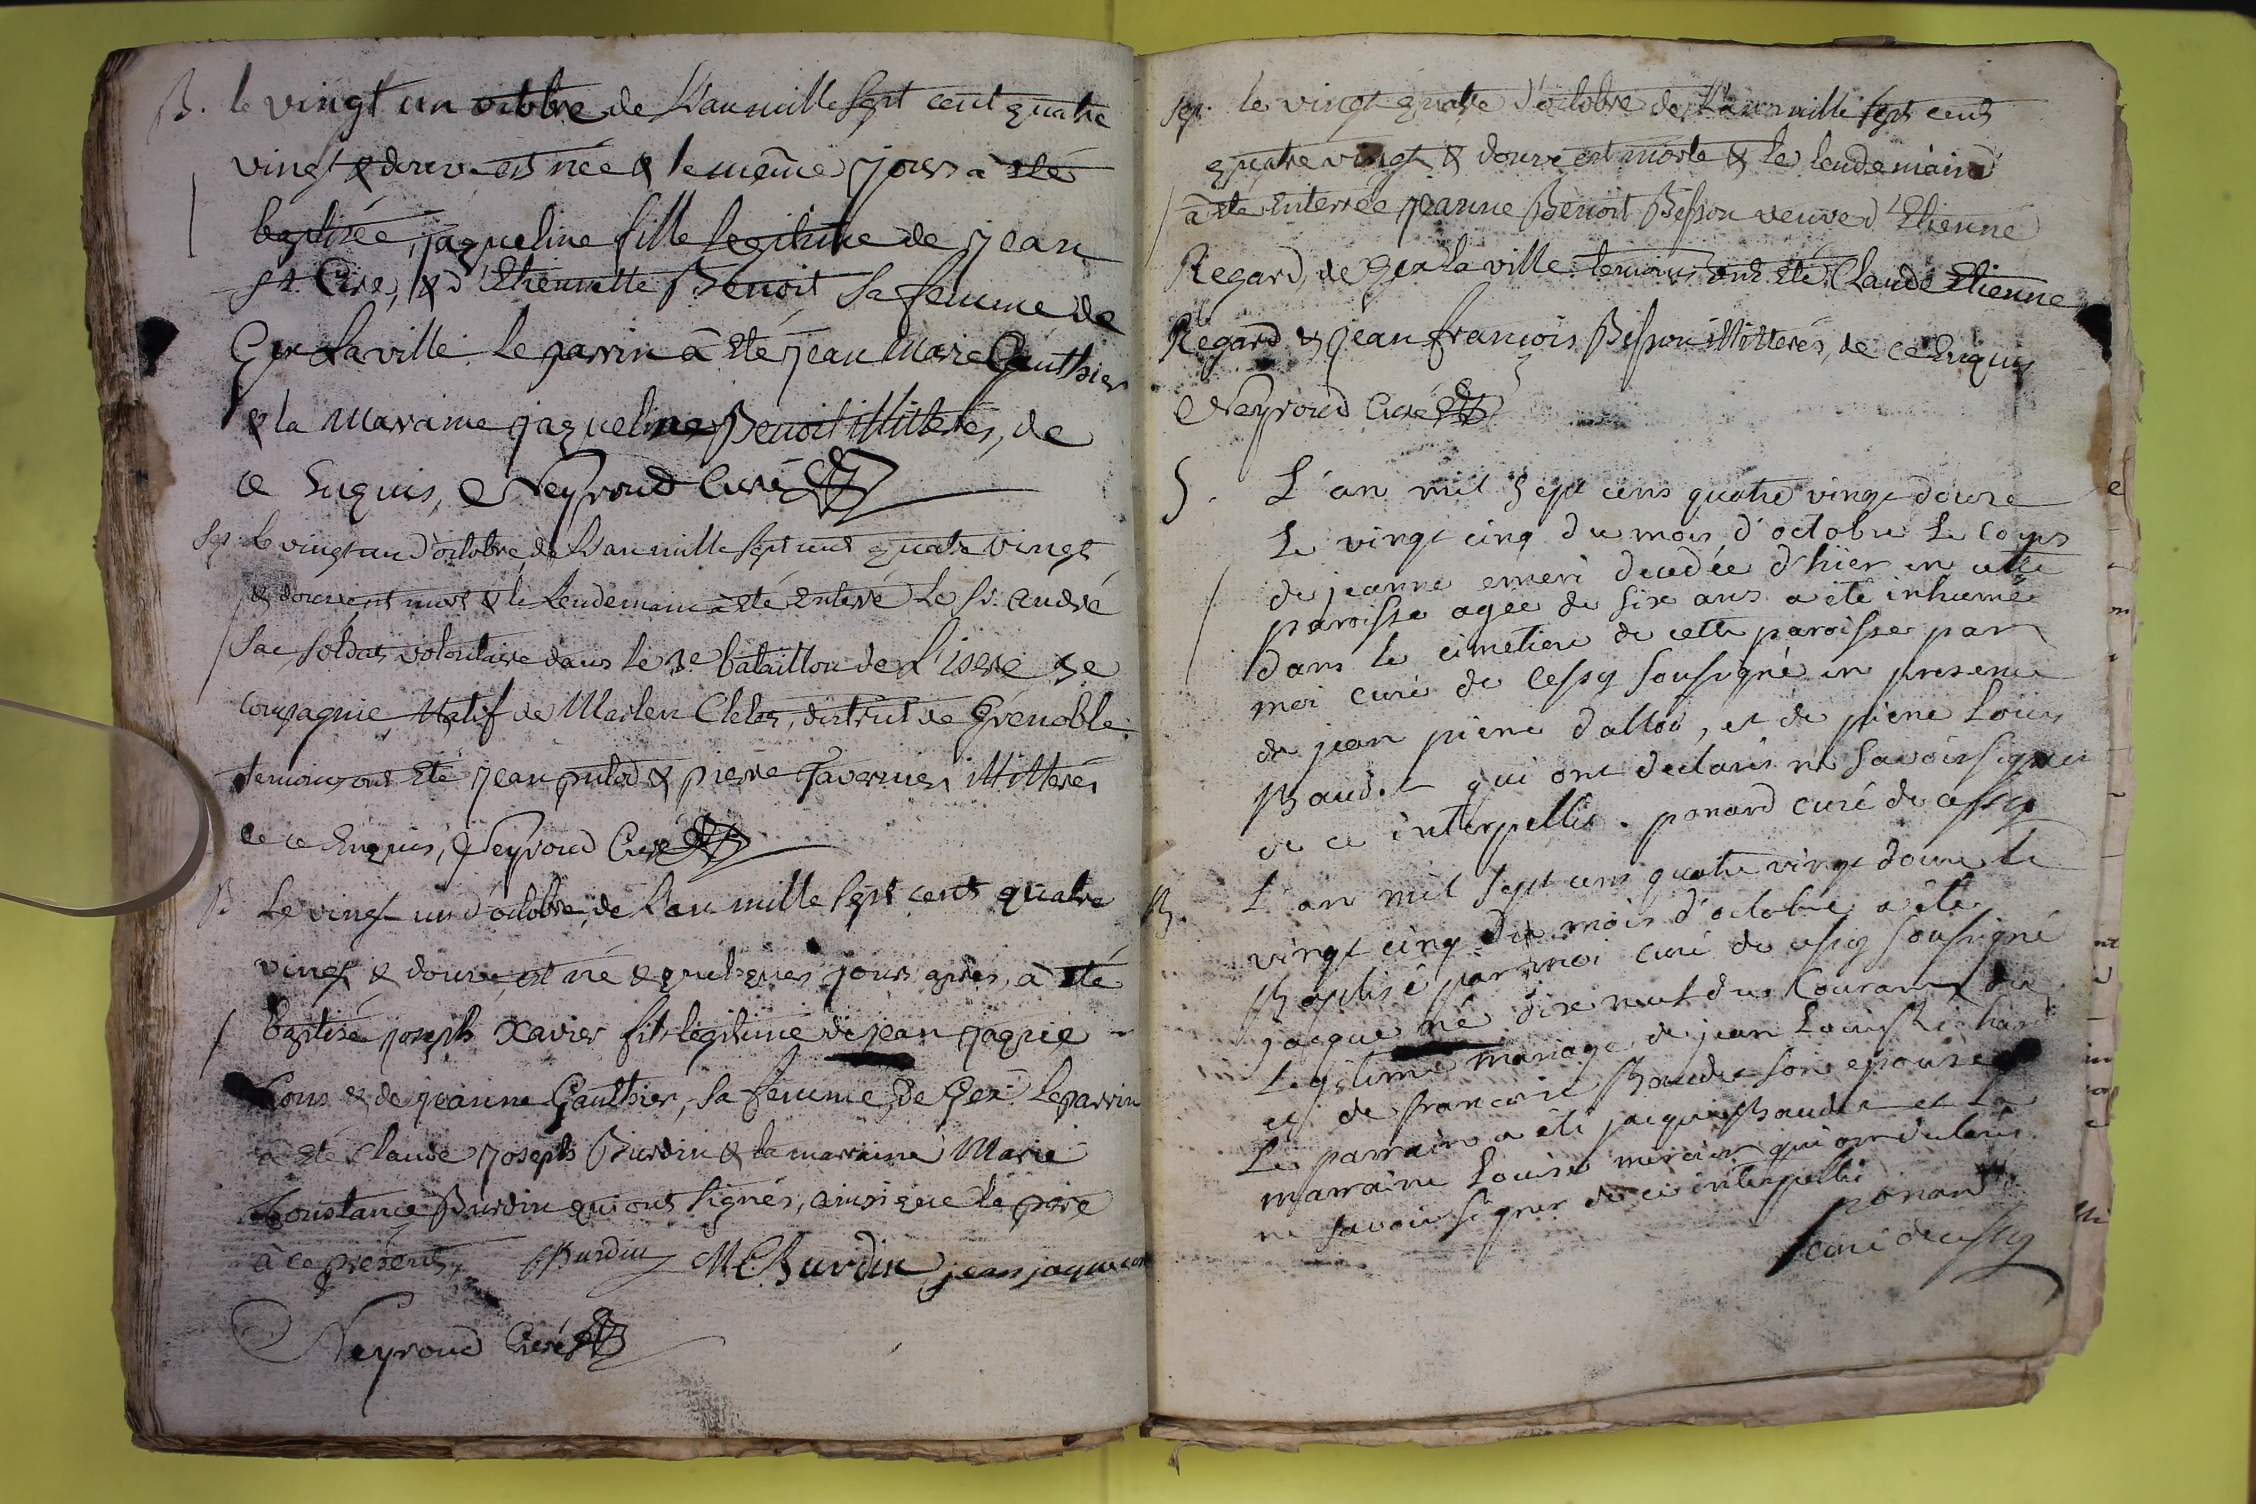 B. le vingt un octobre de L'an mille sept cent quatre
vingt & douze est née & le même jour à eté
baptisée, jaqueline fille legitime de jean
st. Cire, & d'Etiennette Benoit sa femme de
Gex La ville. Le parrin à eté jean Marc Gauthier
& la Marraine jaqueline Benoit illitterés, de
ce Enquis, Neyroud Curé
Sep. Le vingt un d'octobre de L'an mille sept cent quatre vingt
& douze est mort & le Lendemain à eté Enterré Le Sr. André
Sac soldat volontaire dans le 3e bataillon de L'isere 5e
Compagnie Natif de , district de Grenoble.
temoins ont eté jean & pierre Tavernier illitterés
de ce Enquis, Neyroud Curé
B Le vingt un d'octobre, de L'an mille sept cent quatre
vingt & douze, est né & quelques jours après, à eté
baptisé joseph Xavier fils legitime de jean jaque
& de jeanne Gauthier, sa femme, de Gex. Le parrin
à eté Claude joseph Burdin & la marraine Marie
Constance Burdin qui ont signés, ainsi que le pere
à ce présent, Burdin M C Burdin jean jaque
Neyroud Curé
Sep. le vingt quatre d'octobre de L'an mille sept cent
quatre vingt & douze est morte & le lendemain
à eté Enterrée jeanne Benoit Bisson veuve d'Etienne
Regard, de Gex la ville. temoins ont eté Claude Etienne
Regard & jean françois Bisson illitterés, de ce Enquis
Neyroud Curé
S. L'an mil sept cens quatre vingt douze
Le vingt cinq du mois d'octobre le corps
de jeanne emeri decedée d'hier en cette
paroisse agée de six ans a été inhumé
dans le cimetiere de cette paroisse par
moi curé de Cessy soussigné en presence
de jean pierre dallod, et de pierre Louis
Baudet qui ont declaré ne savoir signer
de ce interpellés. ponard curé de cessy
B. L'an mil sept cens quatre vingt douze le
vingt cinq du mois d'octobre a été
Baptisé par moi curé de cessy soussigné
jacque né dixneuf du Courant du
Legitime mariage de jean Louis Richard
et de françoise Baudet son epouse
Le parrain a été jacque Baudet et la
marraine Louise mercier qui ont declaré
ne savoir signer de ce interpellés
ponard
curé de cessy